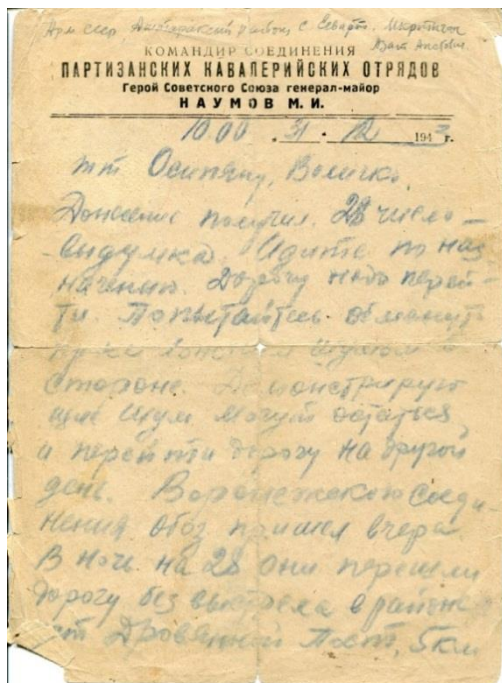 Арм сср. район, с.
КОМАНДИР СОЕДИНЕНИЯ
ПАРТИЗАНСКИХ КАВАЛЕРИЙСКИХ ОТРЯДОВ
Герой Советского Союза генерал-майор
НАУМОВ М. И.
10.00 31. 12 1943 г.
тт Осипяну, Величко.
Донесение получил. 28 число –
выдумка. Идите по наз
начению. Дорогу надо перей–
ти. Попытайтесь обмануть
шумом в
стороне. Демонстрирующ
щие шум могут остаться,
и перейти дорогу на другой
день. Воронежского соеди
нения обоз пришел вчера
В ночь на 28 они перешли
дорогу без выстрела в районе
Дровянной Пост, 5 км